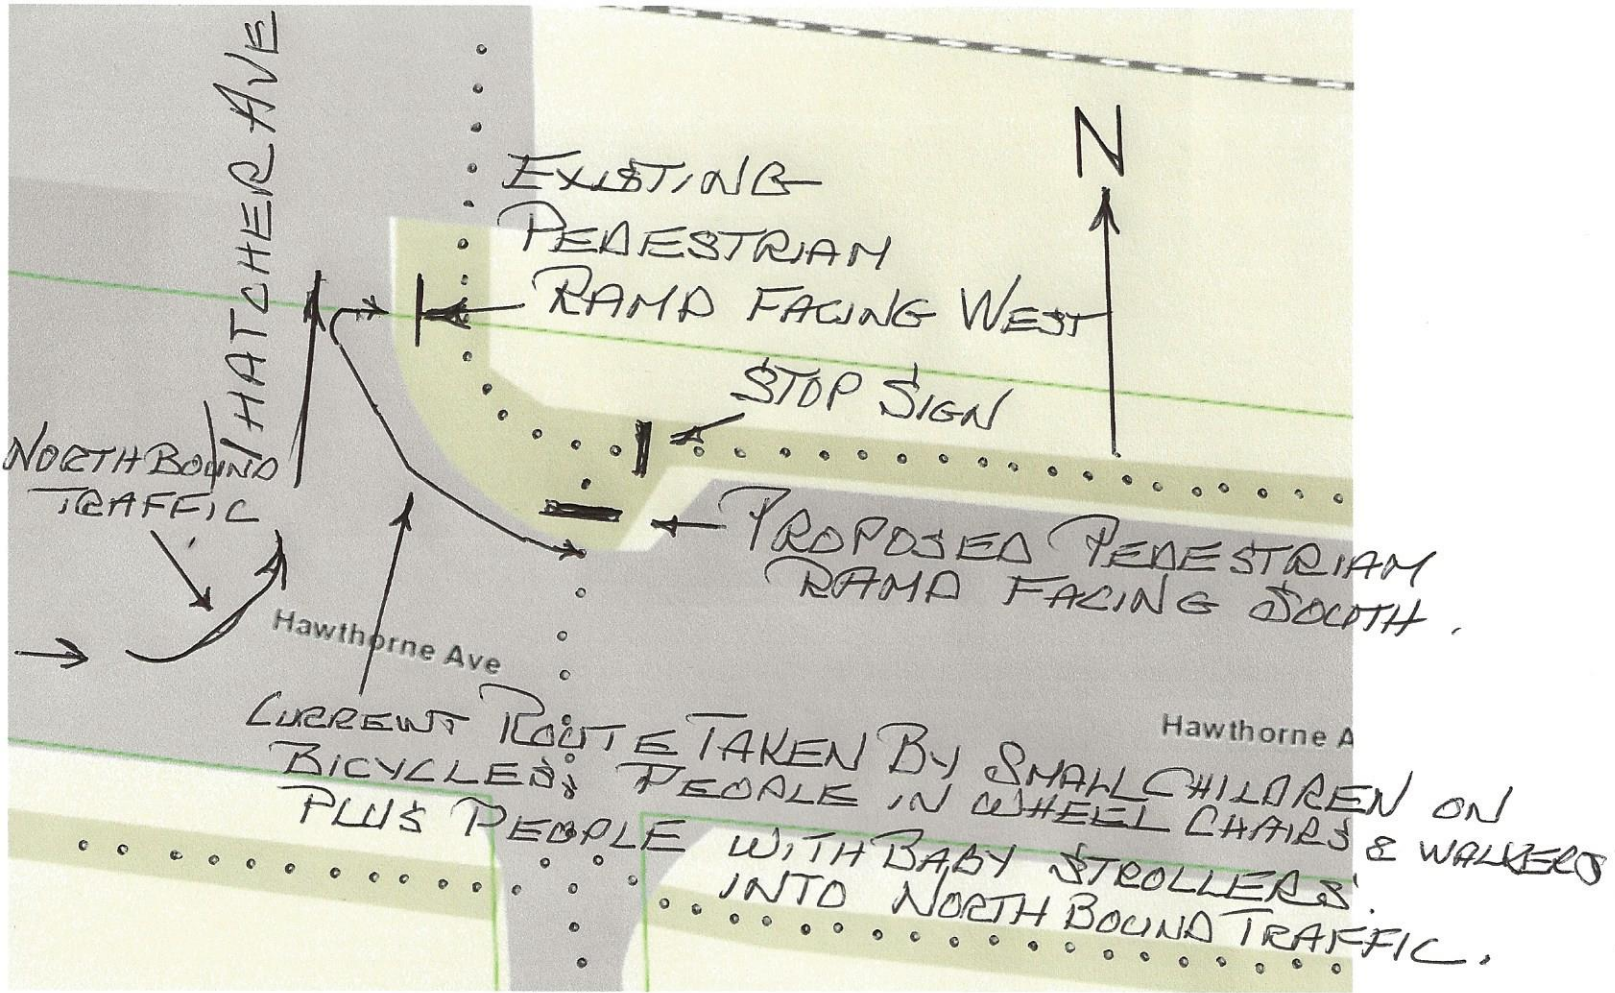 THATCHER AVE
N
EXISTING
PEDESTRIAN
RAMP FACING WEST
STOP SIGN
NORTH BOUND
TRAFFIC
PROPOSED PEDESTRIAN
RAMP FACING SOUTH.
Hawthorne Ave
Hawthorne A
CURRENT ROUTE TAKEN BY SMALL CHILDREN ON
BICYCLES, PEOPLE IN WHEEL CHAIRS & WALKERS
PLUS PEOPLE WITH BABY STROLLERS
INTO NORTH BOUND TRAFFIC.